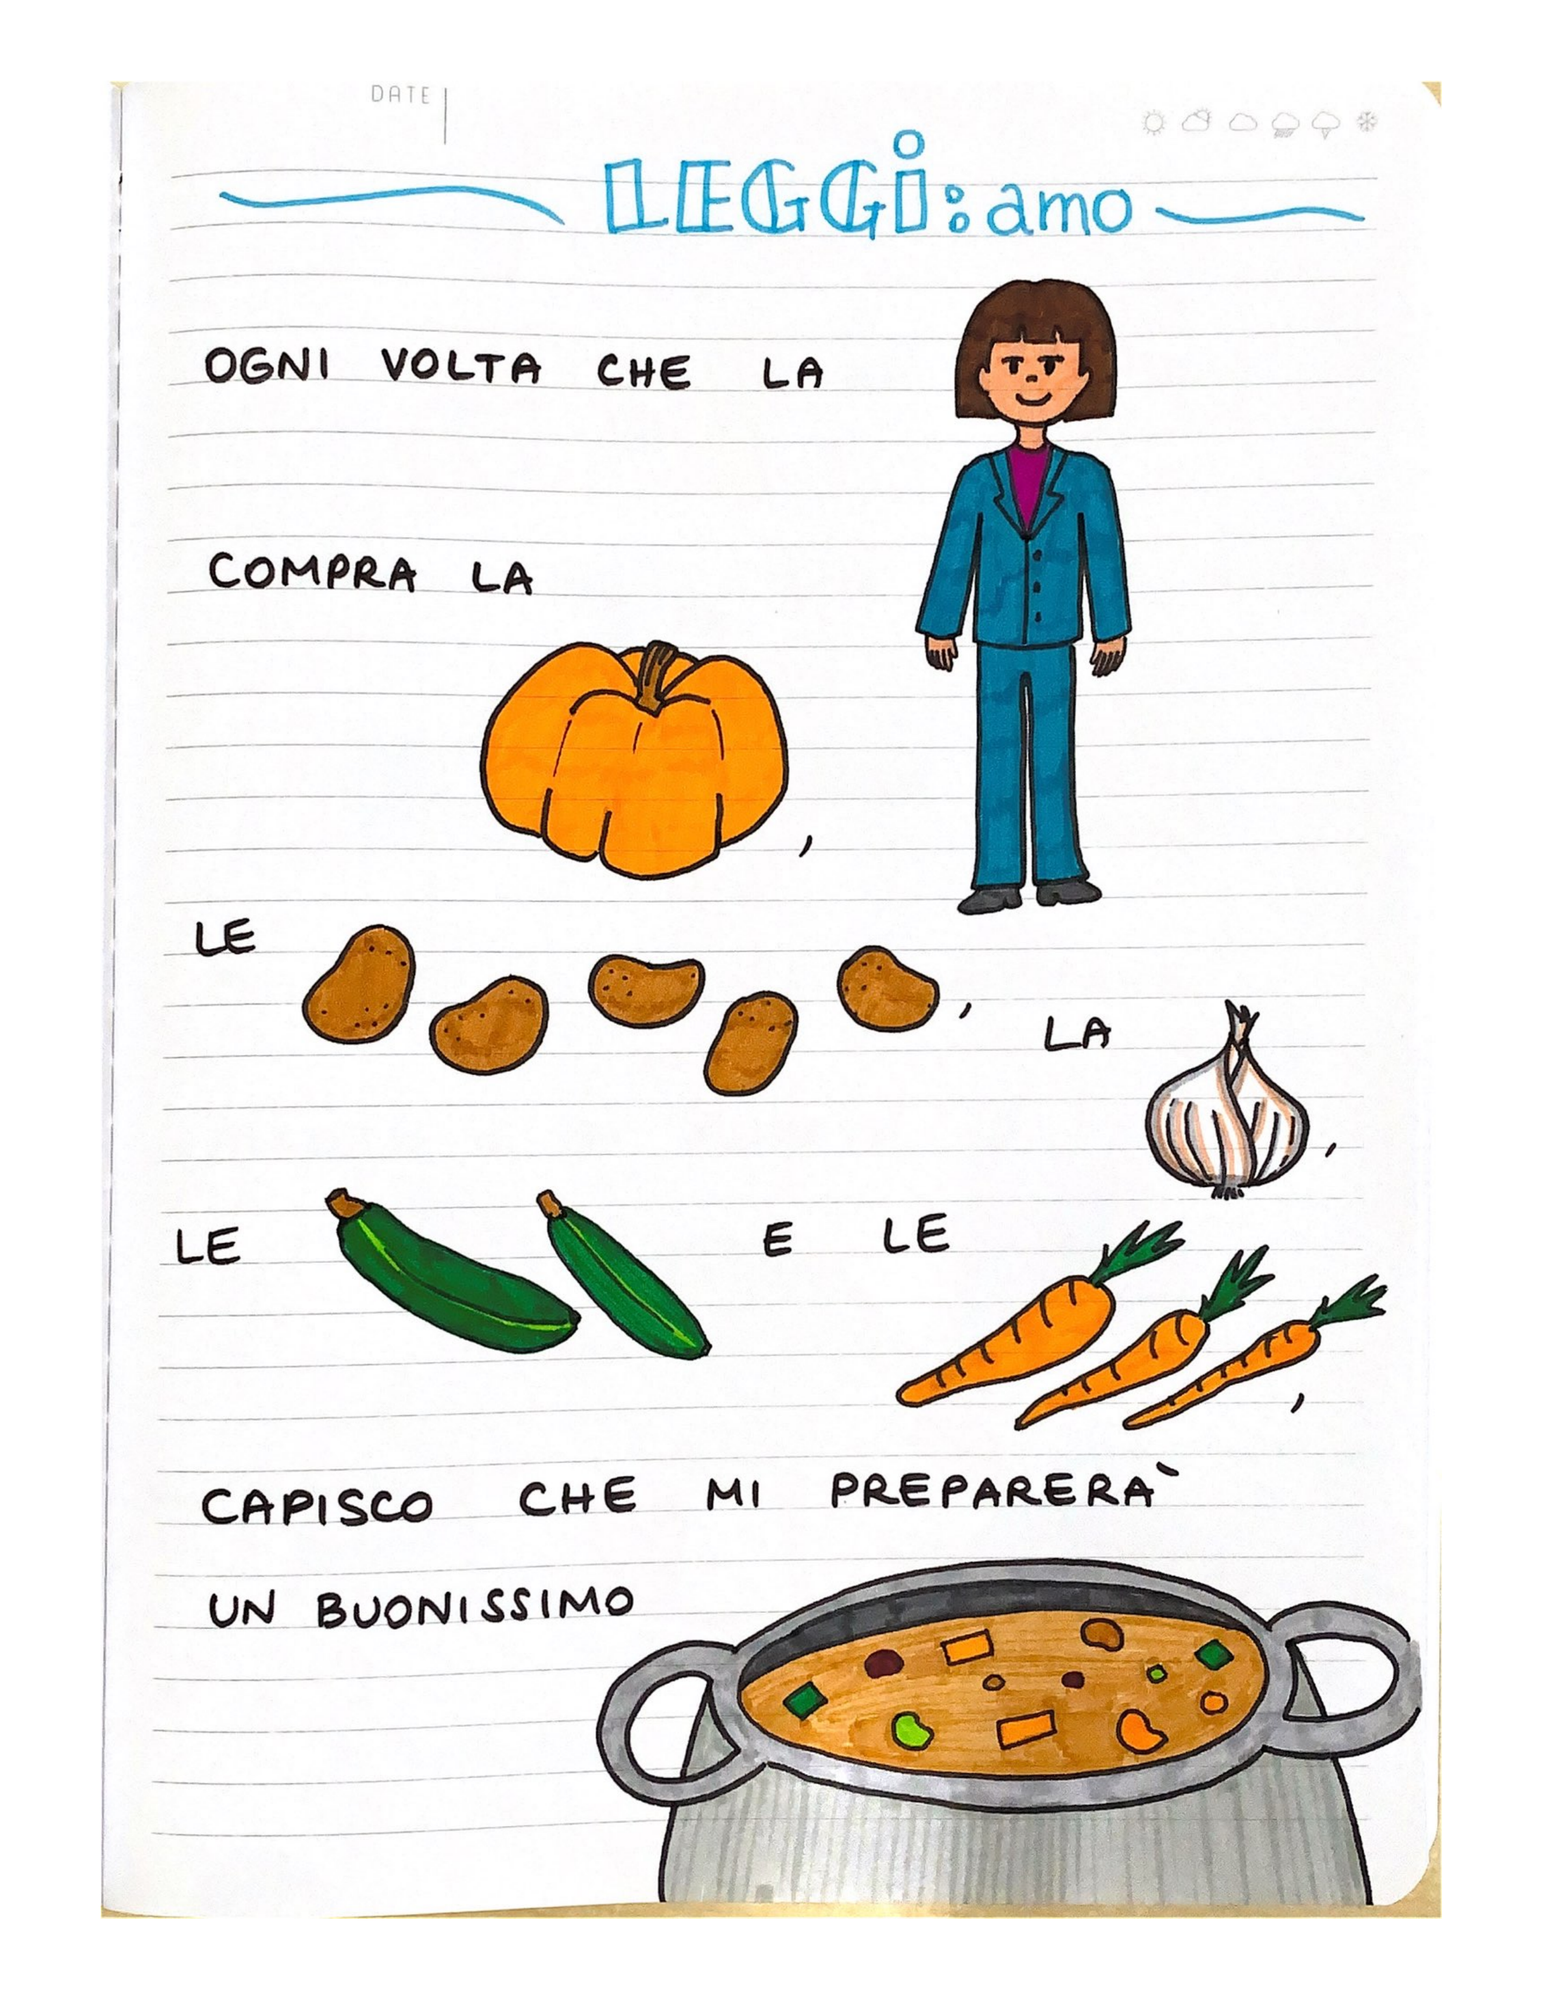 DATE
LEGGi:amo
OGNI VOLTA CHE LA
COMPRA LA
,
LE , LA ,
LE E LE ,
CAPISCO CHE MI PREPARERÀ
UN BUONISSIMO